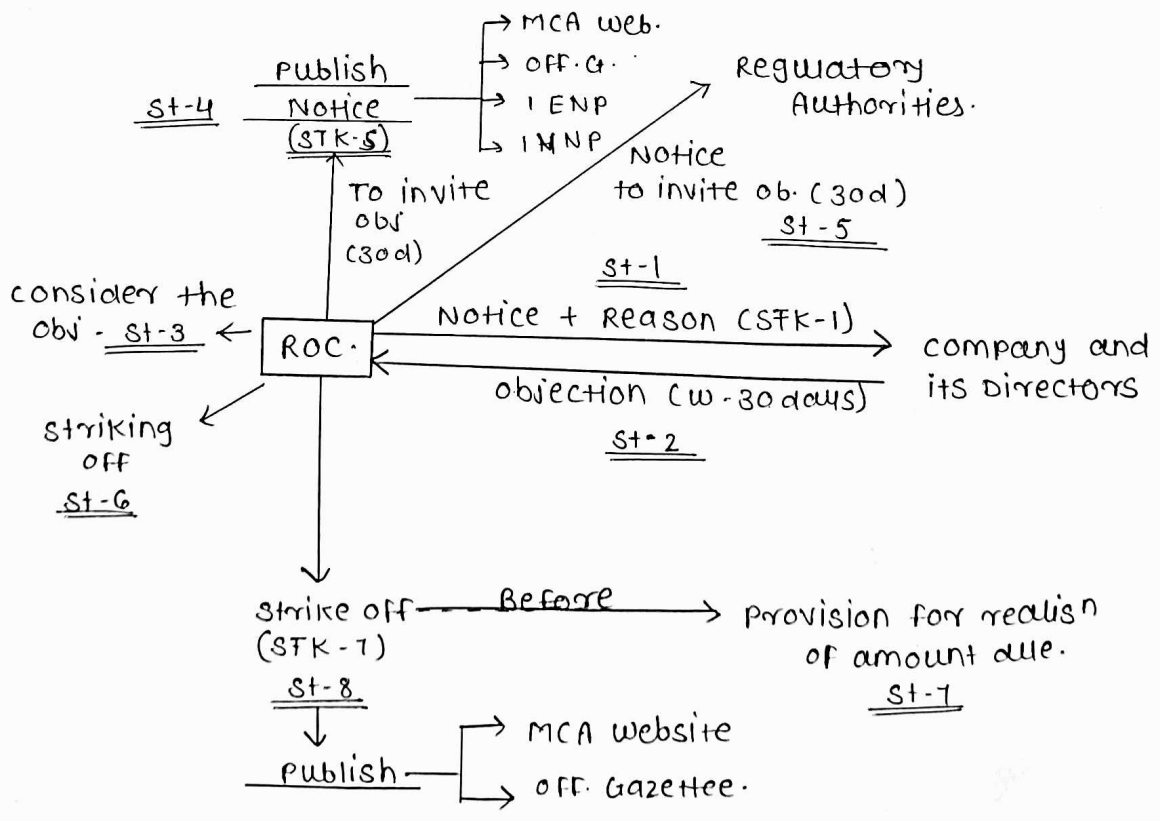 → MCA Web.
Publish → OFF. G.
St-4 Notice → 1 ENP
(STK-5) → 1HNP
Regulatory
Authorities.
Notice
to invite ob. (30d)
St-5
To invite
obj
(30d)
St-1
consider the
obj - St-3
ROC.
Notice + Reason (STK-1)
company and
its Directors
objection (w-30days)
St-2
striking
OFF
St-6
Strike off Before Provision for realisn
(STK-7) of amount due.
St-8 St-7
Publish
MCA Website
OFF. Gazettee.